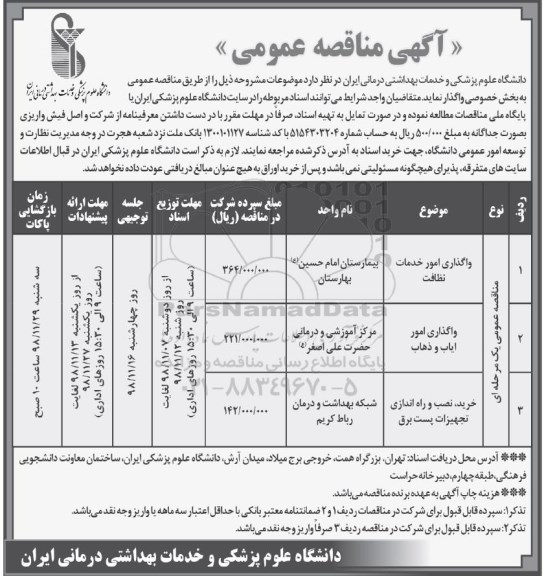 « آگهی مناقصه عمومی »
دانشگاه علوم پزشکی و خدمات بهداشتی درمانی ایران
دانشگاه علوم پزشکی و خدمات بهداشتی درمانی ایران در نظر دارد موضوعات مشروحه ذیل را از طریق مناقصه عمومی
به بخش خصوصی واگذار نماید. متقاضیان واجد شرایط می توانند اسناد مربوطه را در سایت دانشگاه علوم پزشکی ایران یا
پایگاه ملی مناقصات مطالعه نموده و در صورت تمایل به تهیه اسناد، صرفاً در مهلت مقرر با در دست داشتن معرفینامه از شرکت و اصل فیش واریزی
بصورت جداگانه به مبلغ ۵۰۰/۰۰۰ ریال به حساب شماره ۵۱۵۴۳۰۳۲۰۴ با کد شناسه ۱۳۰۰۱۰۱۱۲۷ بانک ملت نزد شعبه هجرت در وجه مدیریت نظارت و
توسعه امور عمومی دانشگاه، جهت خرید اسناد به آدرس ذکر شده مراجعه نمایند. لازم به ذکر است دانشگاه علوم پزشکی ایران در قبال اطلاعات
سایت های متفرقه، پذیرای هیچگونه مسئولیتی نمی باشد و پس از خرید اوراق به هیچ عنوان مبالغ دریافتی عودت داده نخواهد شد.
ردیف
نوع
موضوع
نام واحد
مبلغ سپرده شرکت در مناقصه (ریال)
مهلت توزیع اسناد
جلسه توجیهی
مهلت ارائه پیشنهادات
زمان بازگشایی پاکات
مناقصه عمومی یک مرحله ای
۱
واگذاری امور خدمات نظافت
بیمارستان امام حسین (ع) بهارستان
۳۶۴/۰۰۰/۰۰۰
۲
واگذاری امور ایاب و ذهاب
مرکز آموزشی و درمانی حضرت علی اصغر (ع)
۲۲۱/۰۰۰/۰۰۰
۳
خرید، نصب و راه اندازی تجهیزات پست برق
شبکه بهداشت و درمان رباط کریم
۱۴۲/۰۰۰/۰۰۰
از روز دوشنبه ۹۸/۱۱/۰۷ لغایت
روز شنبه ۹۸/۱۱/۱۲
(ساعت ۹ الی ۱۵:۳۰ روزهای اداری)
روز چهارشنبه ۹۸/۱۱/۱۶
از روز یکشنبه ۹۸/۱۱/۱۳ لغایت
روز یکشنبه ۹۸/۱۱/۲۷
(ساعت ۹ الی ۱۵:۳۰ روزهای اداری)
سه شنبه ۹۸/۱۱/۲۹ ساعت ۱۰ صبح
ParsNamadData
پایگاه اطلاع رسانی مناقصه و مزایده
۰۲۱-۸۸۳۴۹۶۷۰-۵
❋❋❋ آدرس محل دریافت اسناد: تهران، بزرگراه همت، خروجی برج میلاد، میدان آرش، دانشگاه علوم پزشکی ایران، ساختمان معاونت دانشجویی
فرهنگی، طبقه چهارم، دبیرخانه حراست
❋❋❋ هزینه چاپ آگهی به عهده برنده مناقصه می باشد.
تذکر۱: سپرده قابل قبول برای شرکت در مناقصات ردیف ۱ و ۲ ضمانتنامه معتبر بانکی با حداقل اعتبار سه ماهه یا واریز وجه نقد می باشد.
تذکر۲: سپرده قابل قبول برای شرکت در مناقصه ردیف ۳ صرفاً واریز وجه نقد می باشد.
دانشگاه علوم پزشکی و خدمات بهداشتی درمانی ایران